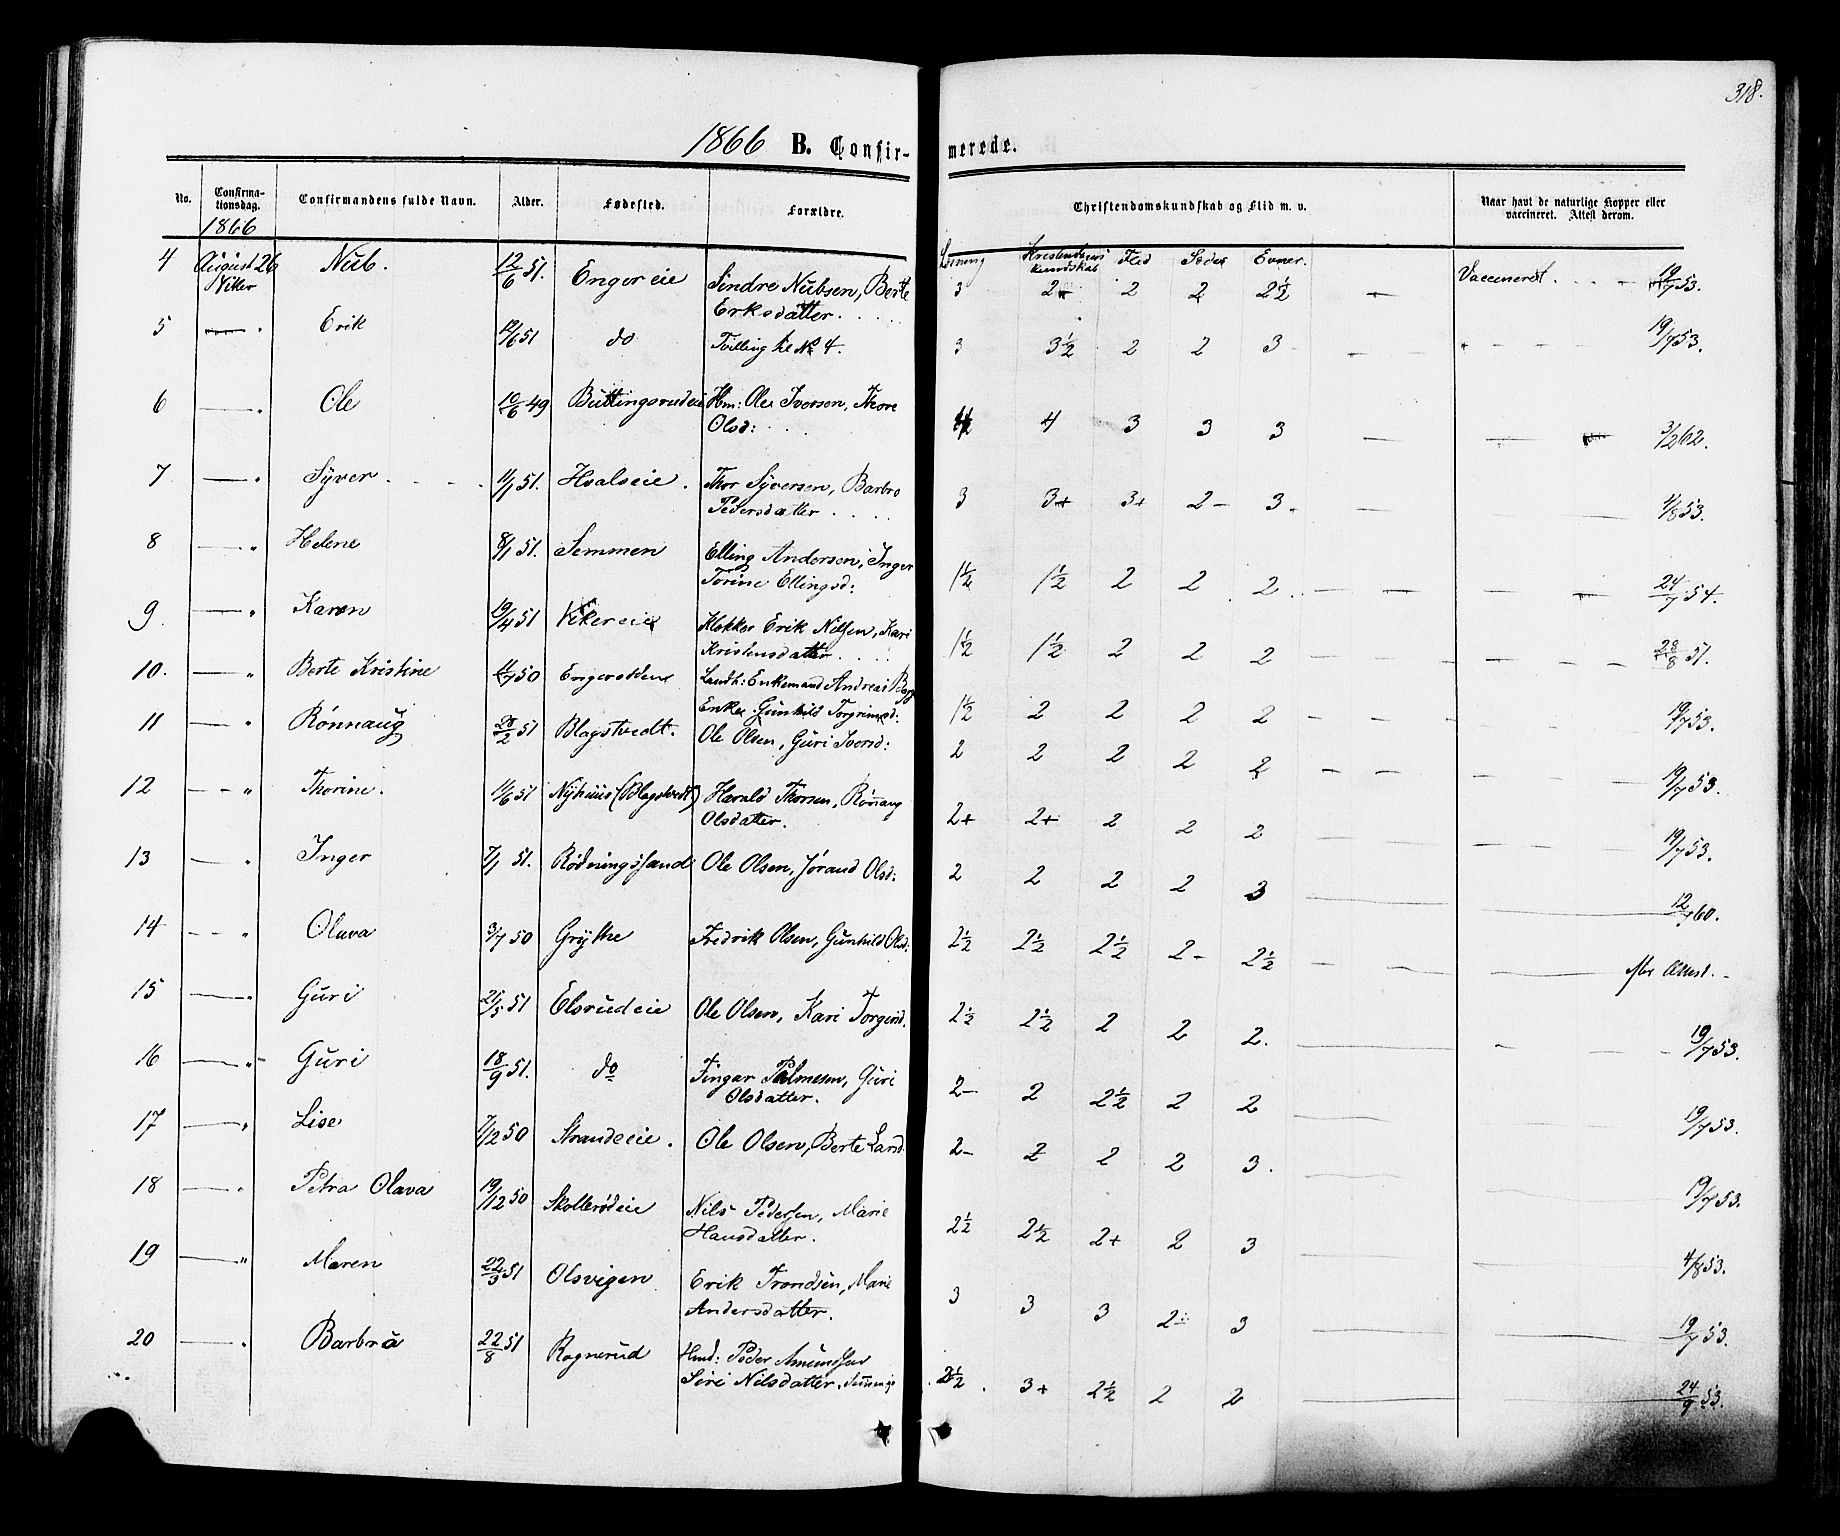 318.
1866 B. Confirmerede.
No. Confirmationsdag. Confirmandens fulde Navn. Alder. Fødested. Forældre. Christendomskundskab og Flid m. v. Naar havt de naturlige Kopper eller vaccineret. Attest derom.
1866
Læsning Kristendomskundskab Flid Sæder Evner.
4 August 26 Viker Nub. 12/6 51. Enger eie Sindre Nubsen, Berte Eriksdatter. 3 2+ 2 2 2½ — Vaccineret. 19/7 53.
5 — " Erik 12/6 51 do Tvilling til No 4. 3 3½ 2 2 3 — " 19/7 53.
6 — " Ole 10/6 49 Buttingsrudeie Hm: Ole Iversen, Thore Olsd: 4 3 3 3 — 3/2 62.
7 — " Syver 11/1 51. Hvalseie. Thor Syversen, Barbro Pedersdatter 3 3+ 3+ 2- 3. — 4/8 53.
8 — " Helene 8/1 51. Semmen Elling Andersen, Inger Torine Ellingsd: 1½ 1½ 2 2 2 — 24/7 54.
9 — " Karen 19/4 51 Vikereie Klokker Erik Nilsen, Kari Kristensdatter 1½ 1½ 2 2 2 — 28/8 51.
10. — " Berte Kristine 11/7 50 Enger Landh: Enkemand Andreas Enke Gunhild Torgrimsd: 1½ 2 2 2 2 — 19/7 53.
11 — " Rønnaug 28/2 51 Blagstvedt. Ole Olsen, Guri Iversd: 2 2 2 2 2 — 19/7 53.
12 — " Thorine. 11/6 51 Nyhuus (Blagstvedt) Harald Thorsen, Rønnaug Olsdatter. 2+ 2+ 2 2 2 — 19/7 53.
13 — " Inger 7/1 51. Rødningssand Ole Olsen, Jørand Olsd: 2 2 2 2 3 — 12/7 60.
14 — " Olava 3/7 50 Grythe Fredrik Olsen, Gunhild Olsd: 2½ 2½ 2½ 2- 2½ — Attest.
15 — " Guri 21/5 51 Elsrudeie Ole Olsen, Kari Torgersd. 2½ 2½ 2 2 2. — 19/7 53.
16 — " Guri 18/9 51. do Fingar Palmesen, Guri Olsdatter. 2- 2 2½ 2 2 — 19/7 53.
17 — " Lise 7/12 50 Strandeeie. Ole Olsen, Berte Larsd. 2- 2 2 2 3. — 19/7 53.
18 — " Petra Olava 19/12 50 Skollerødeie Nils Pedersen, Marie Hansdatter. 2½ 2½ 2+ 2 3 — 4/8 53.
19 — " Maren 22/3 51 Olsvigen Erik Trondsen, Marie Andersdatter. 3 3 3 2- 3 — 19/7 53.
20 — " Barbra 22/8 51 Rognerud Hmd: Peder Amundsen Siri Nilsdatter, 2½ 3+ 2½ 2 2 — 24/9 53.